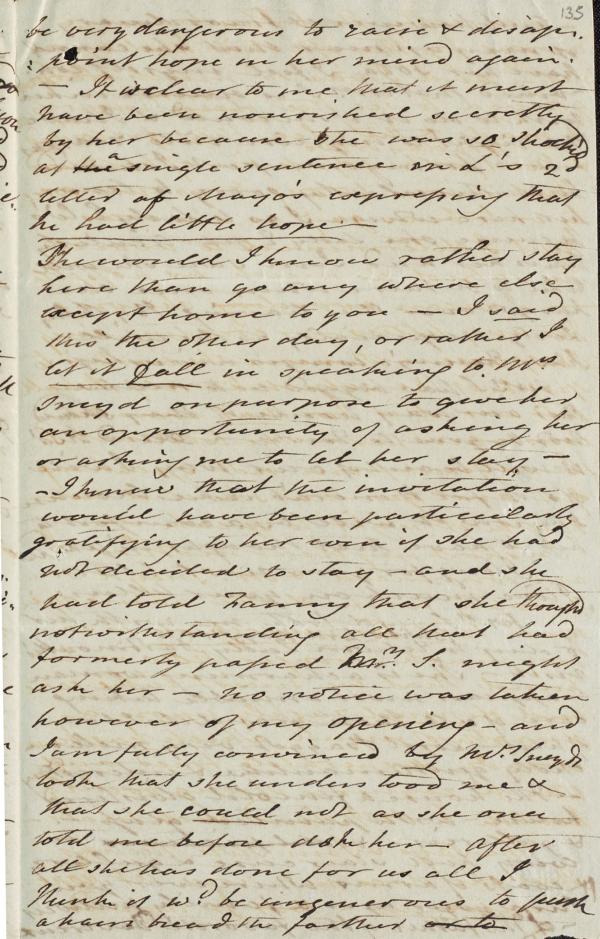 135
be very dangerous to raise & disap-
point hope in her mind again.
— It is clear to me that it must
have been nourished secretly
by her because she was so shocked
at the a single sentence in L's 2d
letter of Mayo's expressing that
he had little hope —
She would I know rather stay
here than go any where else
except home to you — I said
this the other day, or rather I
let it fall in speaking to Mrs
Sneyd on purpose to give her
an opportunity of asking her
or asking me to let her stay —
— I knew that the invitation
would have been particularly
gratifying to her even if she had
not decided to stay — and she
had told Fanny that she thought
notwithstanding all that had
formerly passed Mrs. S. might
ask her — no notice was taken
however of my opening — and
I am fully convinced by Mrs Sneyds
look that she understood me &
that she could not as she once
told me before ask her — after
all she has done for us all I
think it wd. be ungenerous to push
a hairs breadth farther or to